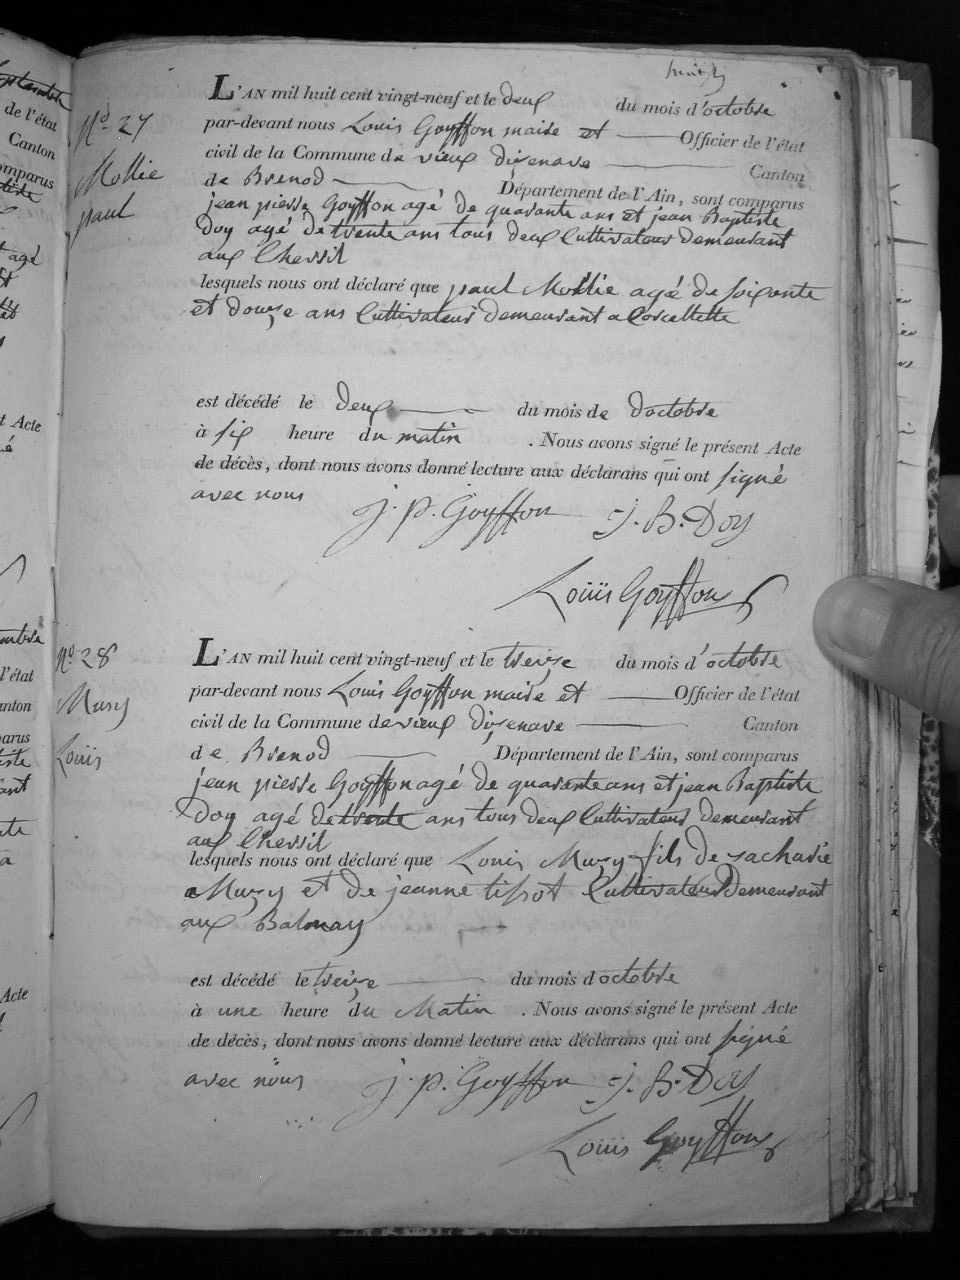 huit
N.º 27
Mollie
paul
L'AN mil huit cent vingt-neuf et le deux du mois d'octobre
par-devant nous Louis Goyffon maire et Officier de l'état
civil de la Commune de vieux disenave Canton
de Brenod Département de l'Ain, sont comparus
jean pierre Goyffon agé de quarante ans et jean Baptiste
Doy agé de trente ans tous deux Cultivateurs demeurant
aux Chessil
lesquels nous ont déclaré que paul Mollie agé de soixante
et douze ans Cultivateur demeurant a Corcellette
est décédé le deux du mois de doctobre
à six heure du matin . Nous avons signé le présent Acte
de décès, dont nous avons donné lecture aux déclarans qui ont signé
avec nous
j. p. Goyffon J. B. Doy
Louis Goyffon
N.º 28
Muzy
Louis
L'AN mil huit cent vingt-neuf et le treize du mois d'octobre
par-devant nous Louis Goyffon maire et Officier de l'état
civil de la Commune de vieux disenave Canton
de Brenod Département de l'Ain, sont comparus
jean pierre Goyffon agé de quarante ans et jean Baptiste
Doy agé de trente ans tous deux Cultivateurs demeurant
aux Chessil
lesquels nous ont déclaré que Louis Muzy fils de zacharie
Muzy et de jeanne tissot Cultivateur demeurant
aux Balmay
est décédé le treize du mois d octobre
à une heure du Matin . Nous avons signé le présent Acte
de décès, dont nous avons donné lecture aux déclarans qui ont signé
avec nous
j. p. Goyffon J. B. Doy
Louis Goyffon